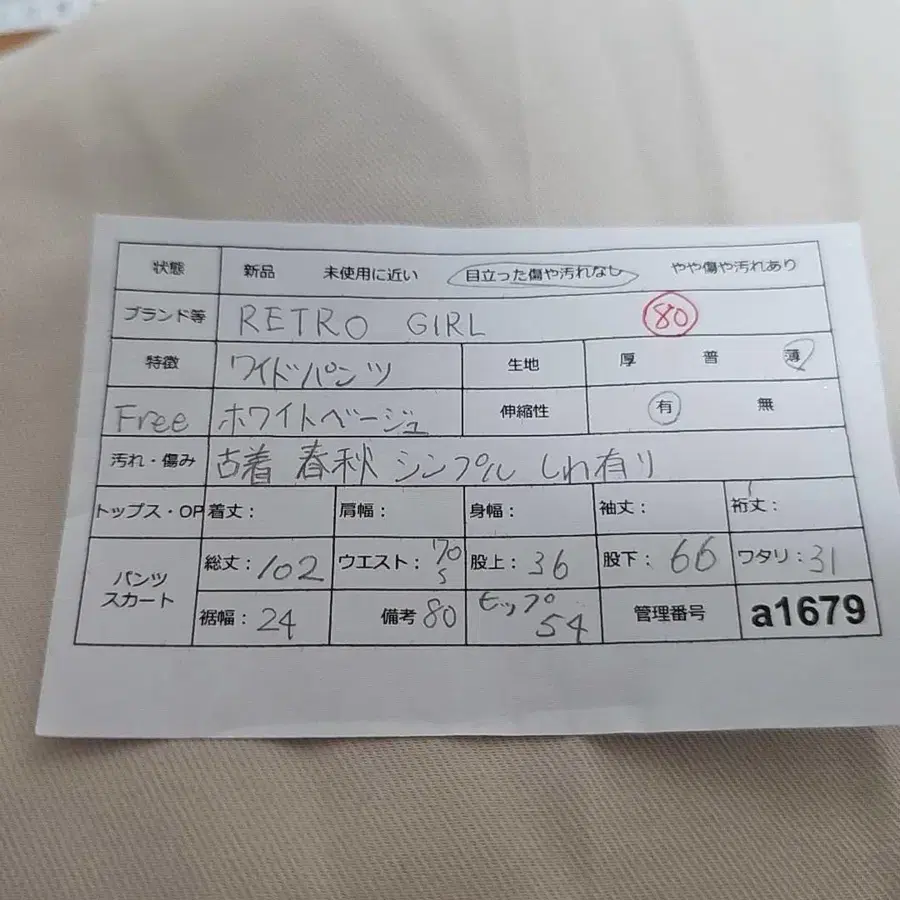 状態 新品 未使用に近い 目立った傷や汚れなし やや傷や汚れあり
ブランド等 RETRO GIRL 80
特徴 ワイドパンツ 生地 厚 普 薄
Free ホワイトベージュ 伸縮性 有 無
汚れ・傷み 古着 春秋 シンプル しわ有り
トップス・OP 着丈: 肩幅: 身幅: 袖丈: 裄丈:
パンツ スカート 総丈:102 ウエスト:70 s 股上:36 股下:66 ワタリ:31
裾幅:24 備考 80 ヒップ 54 管理番号 a1679